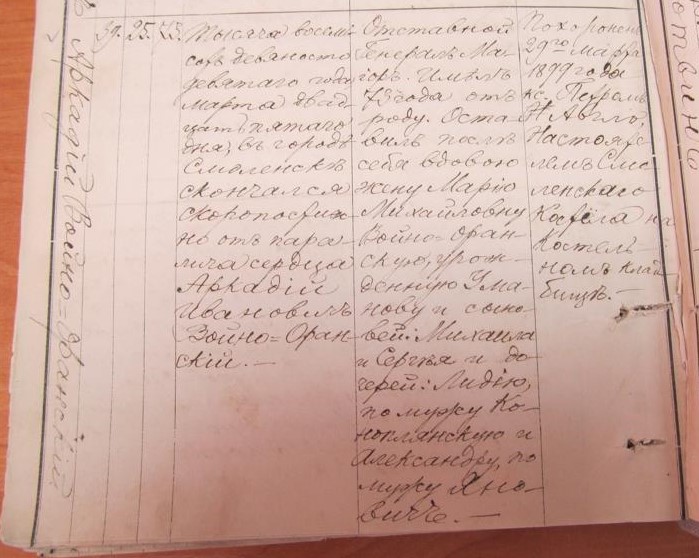 Аркадій Войно=Оранскій
39.
25.
73.
Тысяча восемь
сотъ девяносто
девятаго года,
Марта двад
цать пятаго
дня, въ городѣ
Смоленскѣ
скончался
скоропостиж
но отъ пара-
лича сердца
Аркадій
Ивановичъ
Войно=Оран-
скій. —
Отставной
Генералъ Ма-
іоръ. Имѣлъ
73 года отъ
роду. Оста-
вилъ послѣ
себя вдовою
жену Марію
Михайловну
Войно=Оран-
скую, урож-
денную Ума-
нову и сыно-
вей: Михаила
и Сергѣя и до-
черей: Лидію,
по мужу Ко-
ноплянскую и
Александру, по
мужу Яно-
вичъ. —
Похороненъ
29го Марта
1899 года
кс. Петромъ
Настояте-
лемъ Смо-
ленскаго
Костёла на
Костель-
номъ клад
бищѣ. —